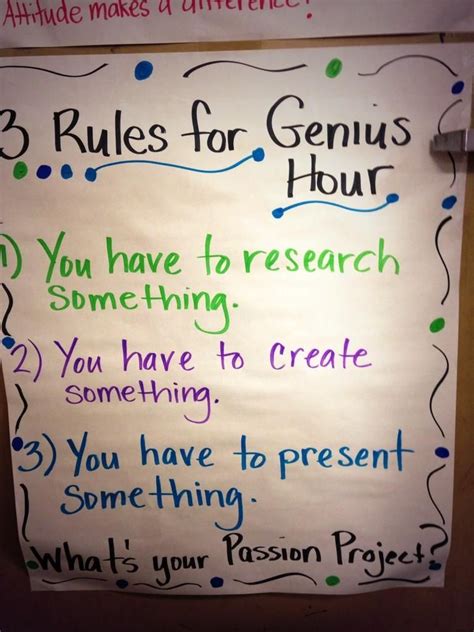 Attitude makes a difference!
3 Rules for Genius
Hour
1) You have to research
something.
2) You have to create
something.
3) You have to present
something.
What's your Passion Project?